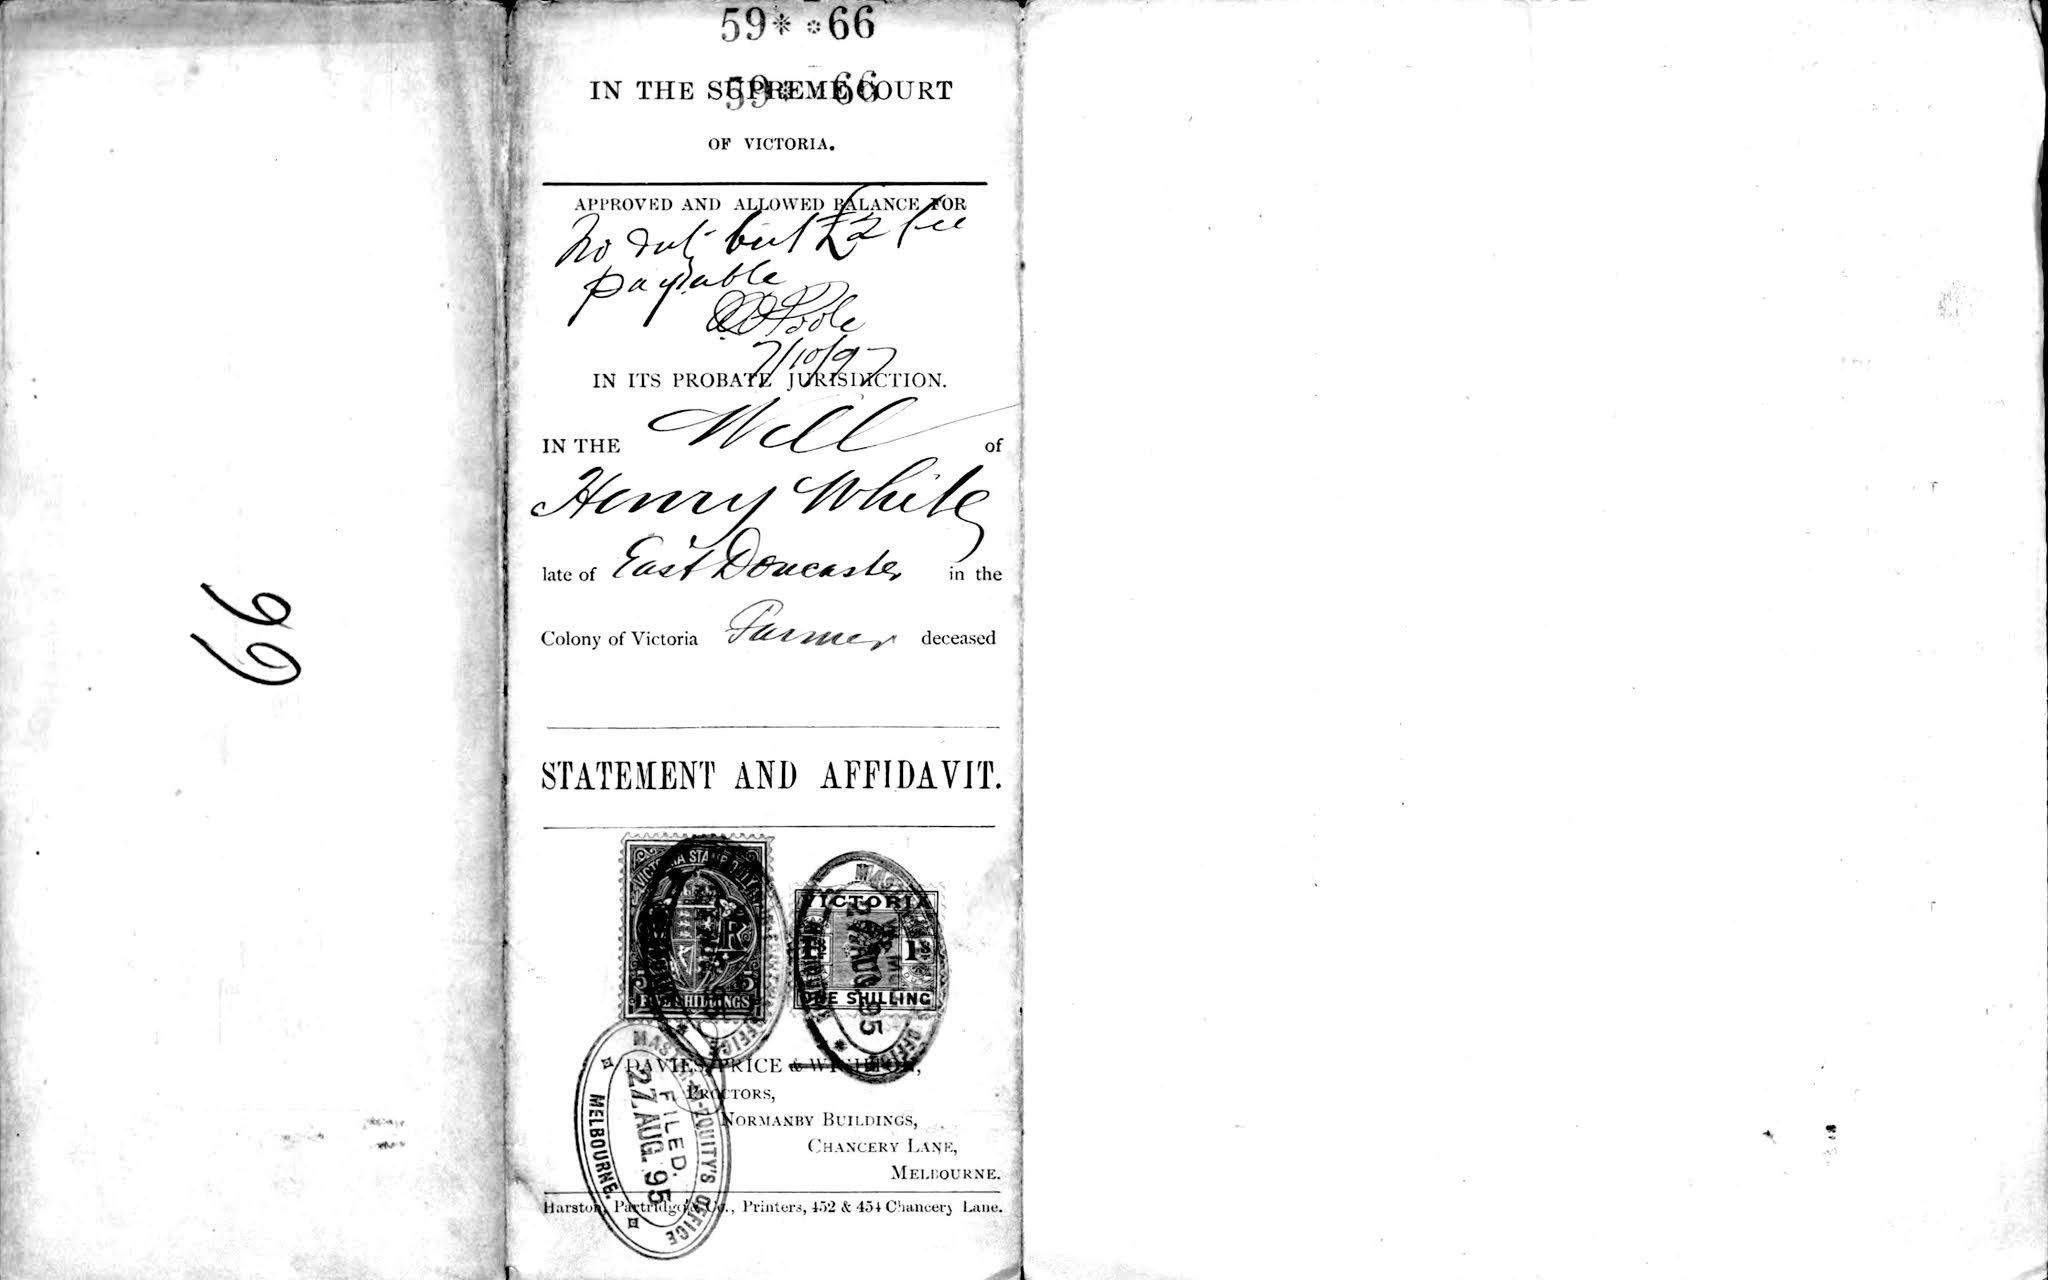 66
59* *66
59* *66
IN THE SUPREME COURT
OF VICTORIA.
APPROVED AND ALLOWED BALANCE FOR
No duty but £2 fee
payable
Poole
7/10/97
IN ITS PROBATE JURISDICTION.
IN THE Will of
Henry White
late of East Doncaster in the
Colony of Victoria Farmer deceased
STATEMENT AND AFFIDAVIT.
VICTORIA STAMP DUTY
FIVE SHILLINGS
VICTORIA
1s 1s
ONE SHILLING
27 AUG. 95
DAVIES, PRICE & WIGHTON,
PROCTORS,
NORMANBY BUILDINGS,
CHANCERY LANE,
MELBOURNE.
MASTER-IN-EQUITY'S OFFICE
FILED.
27 AUG. 95
MELBOURNE.
Harston, Partridge & Co., Printers, 452 & 454 Chancery Lane.